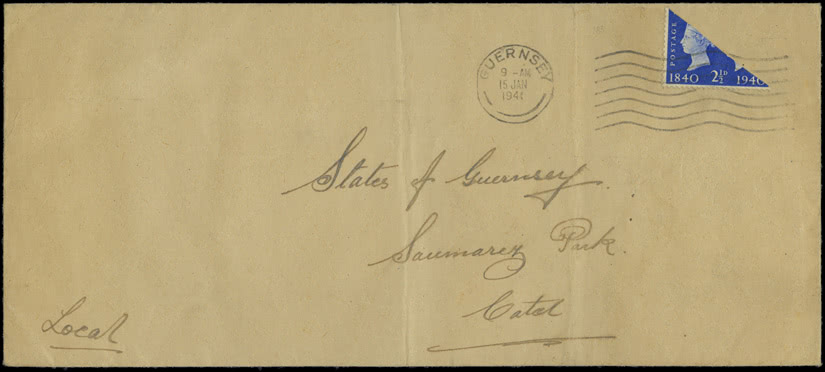 GUERNSEY
9 - AM
15 JAN
1941
POSTAGE
1840 2½D 1940
States of Guernsey.
Saumarez Park.
Catel
Local